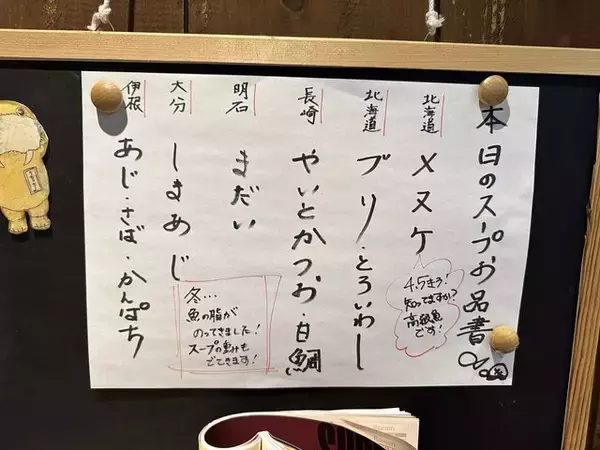 本日のスープお品書
北海道
メヌケ
4.5キロ!
知ってますか?
高級魚
です!
北海道
ブリ・とろいわし
長崎
やいとかつお・白鯛
明石
まだい
大分
しまあじ
冬…
魚の脂が
のってきました!
スープの重みも
でてきます!
伊根
あじ・さば・かんぱち